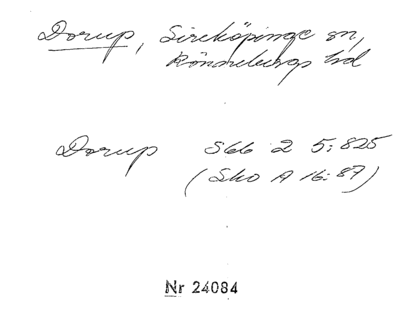 Dorup, Sireköpinge sn,
Rönnebergs hd
Dorup S66 2 5:825
(Sko A 16:87)
Nr 24084